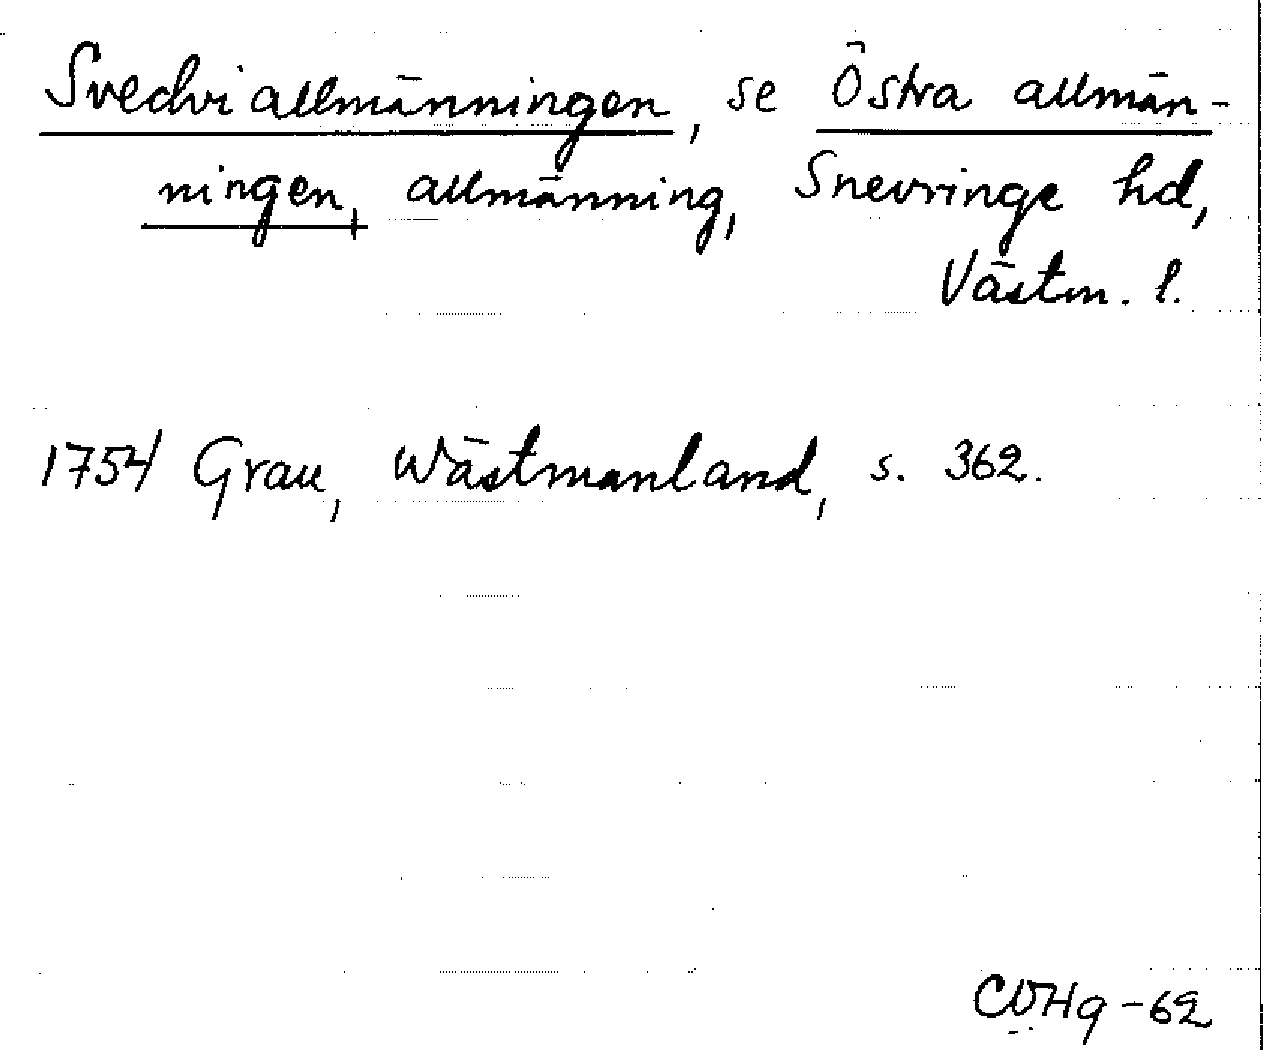 Svedviallmänningen, se Östra allmän-
ningen, allmänning, Snevringe hd,
Västm. l.
1754 Grau, Wästmanland, s. 362.
-62